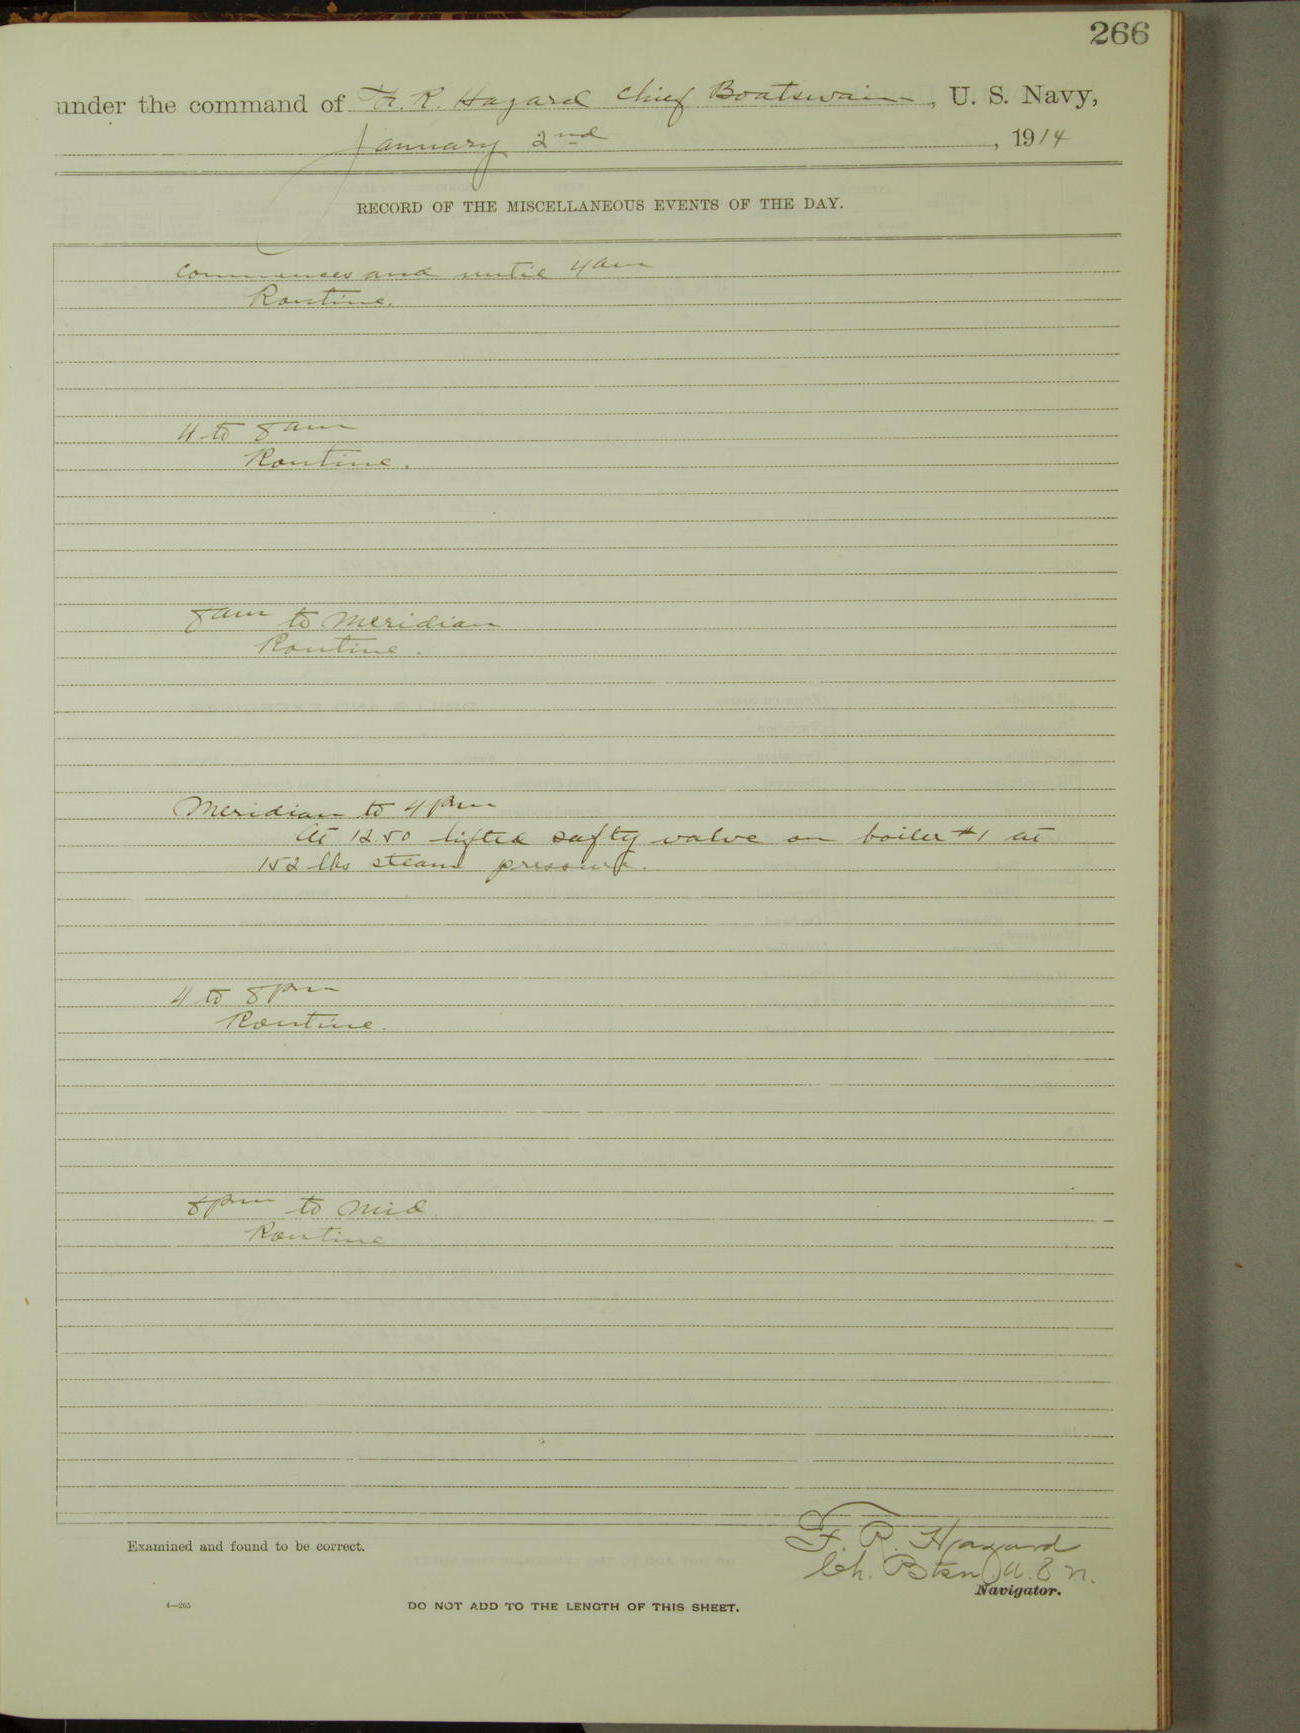 266
under the command of F. R. Hazard Chief Boatswain, U. S. Navy,
January 2nd, 1914
RECORD OF THE MISCELLANEOUS EVENTS OF THE DAY.
Commences and until 4am
Routine.
4 to 8am
Routine.
8am to Meridian
Routine.
Meridian to 4pm
At 12.50 lifted safty valve on boiler #1 at
152 lbs steam pressure.
4 to 8pm
Routine.
8pm to Mid.
Routine
Examined and found to be correct.
F. R. Hazard
Ch. Btsn U.S.N.
Navigator.
4—265
DO NOT ADD TO THE LENGTH OF THIS SHEET.